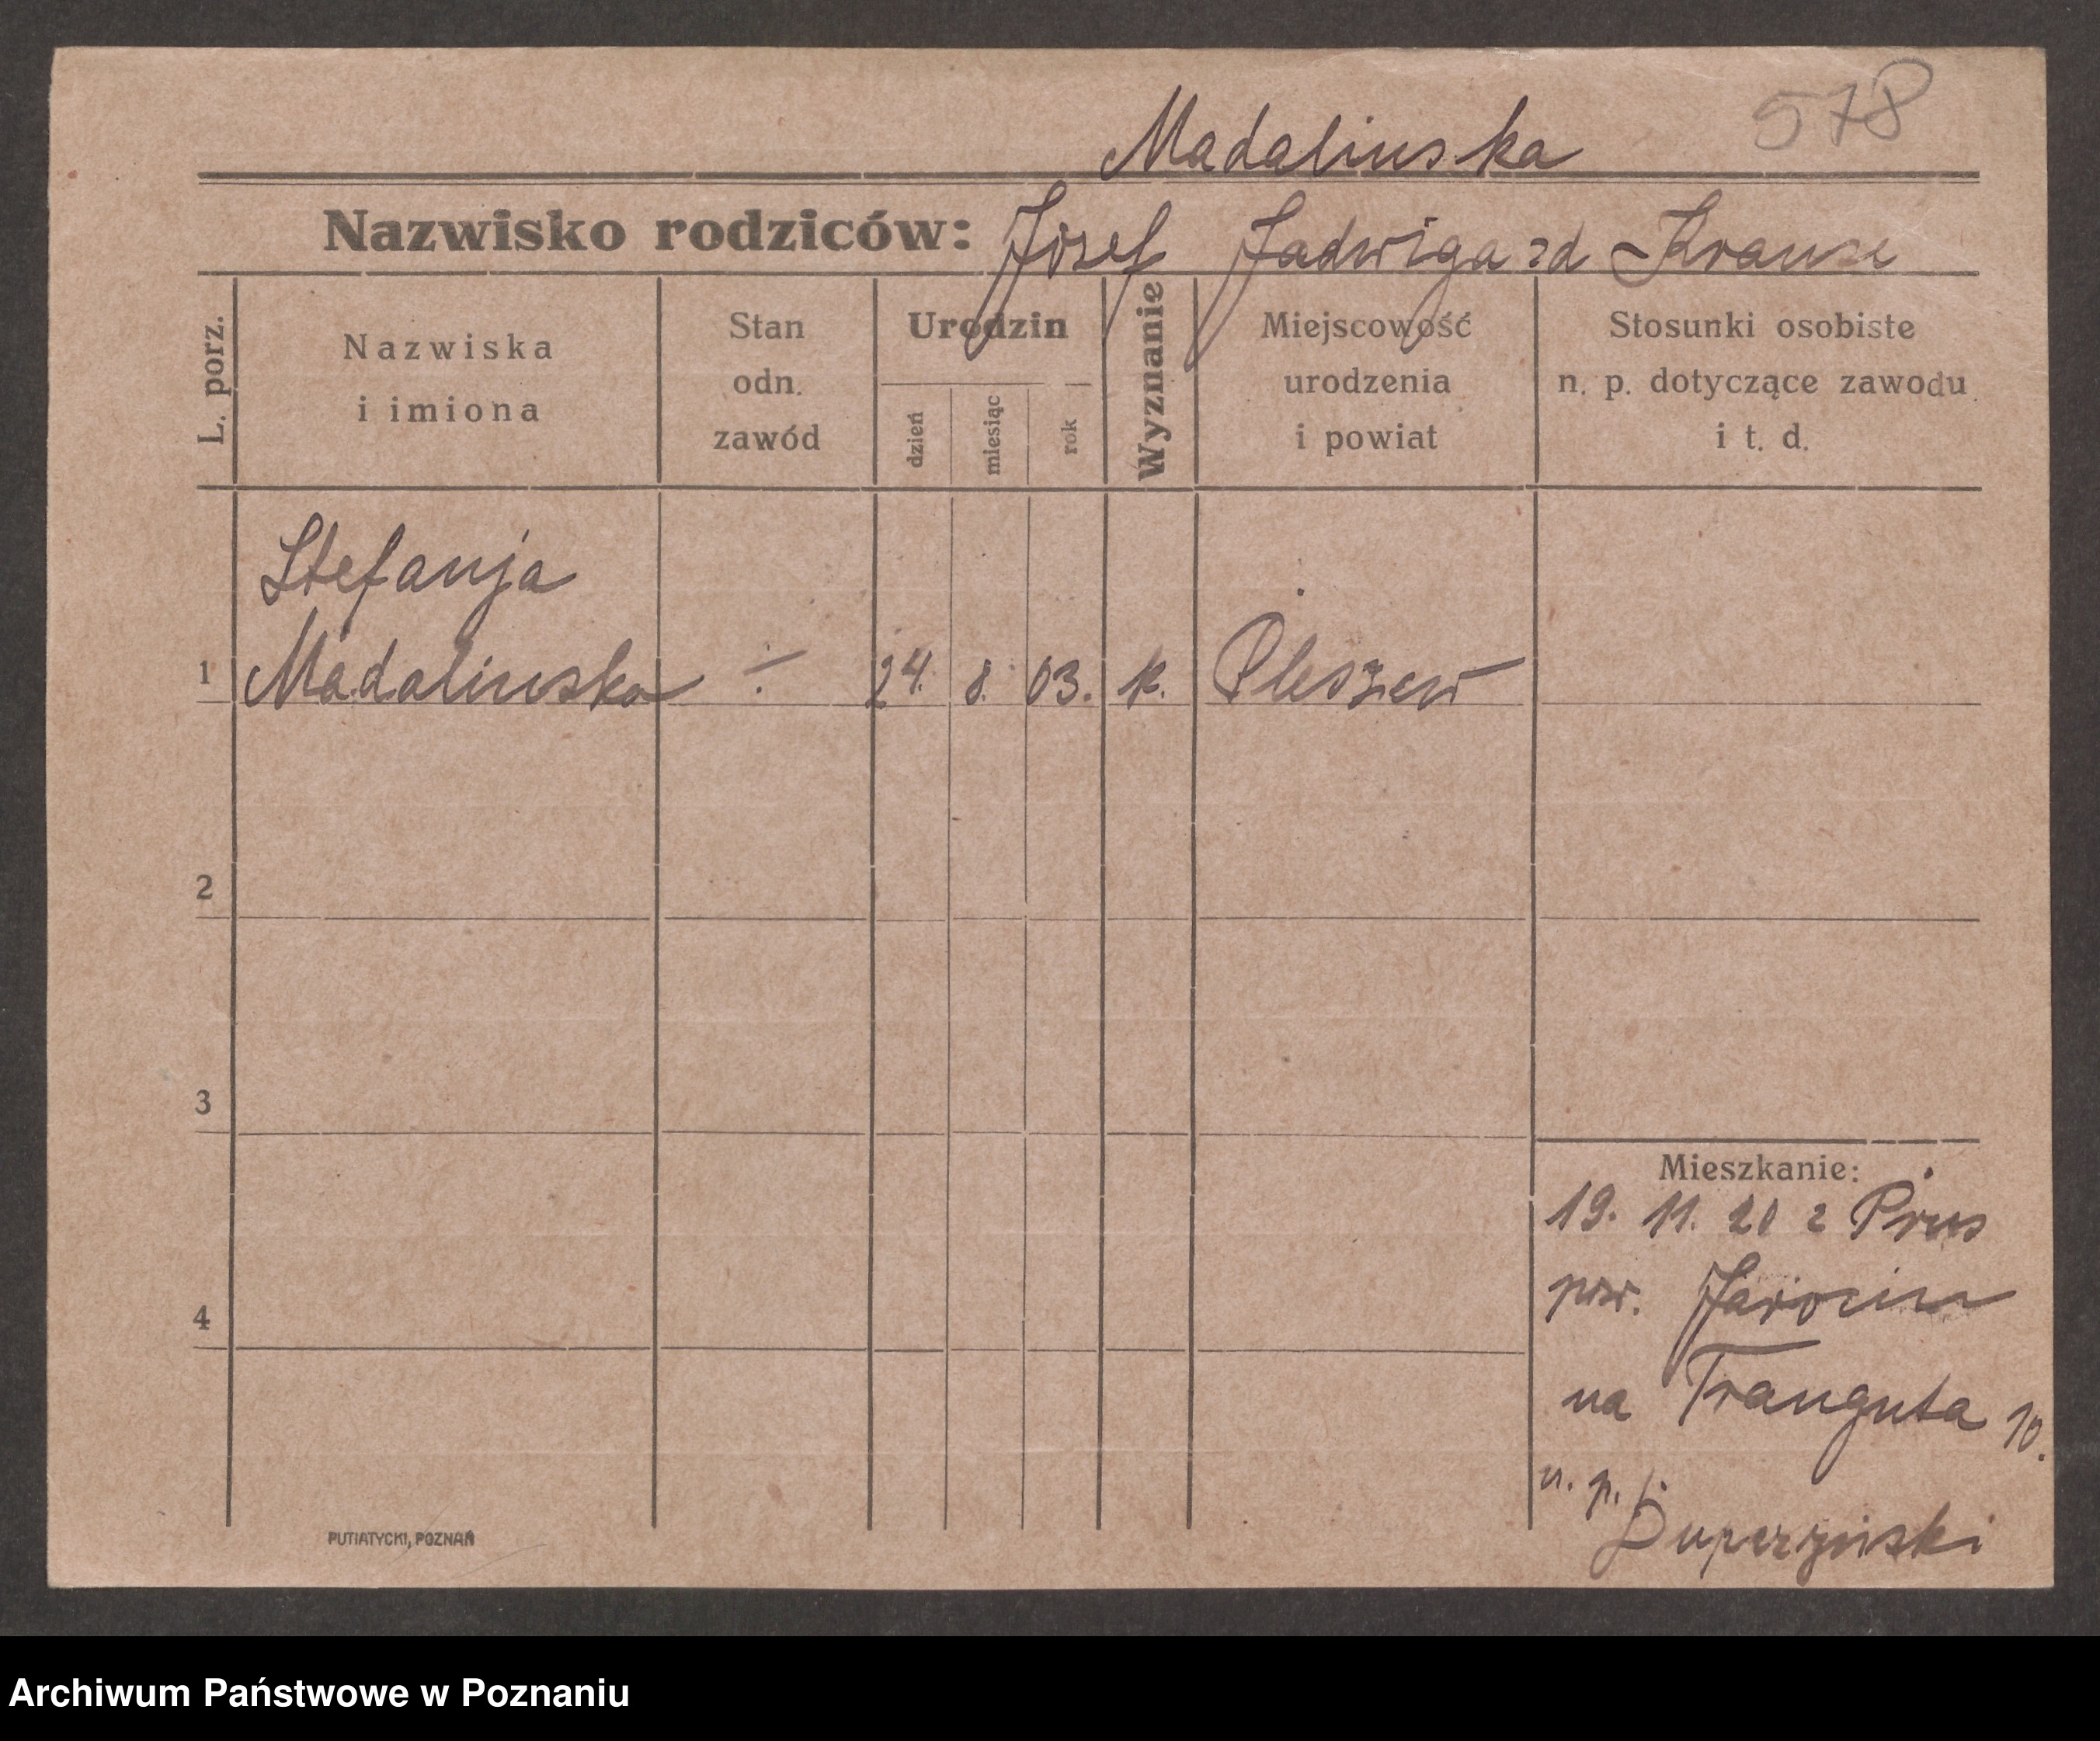 578
Madalinska
Nazwisko rodziców: Józef Jadwiga zd Krause
L. porz.
Nazwiska
i imiona
Stan
odn.
zawód
Urodzin
dzień
miesiąc
rok
Wyznanie
Miejscowość
urodzenia
i powiat
Stosunki osobiste
n. p. dotyczące zawodu
i t. d.
Stefanja
1 Madalinska ÷ 24. 8. 03. k. Pleszew
2
3
4
Mieszkanie:
19. 11. 20 z Prus
pow. Jarocin
na Trauguta 10.
u. p.
PUTIATYCKI, POZNAŃ
Archiwum Państwowe w Poznaniu